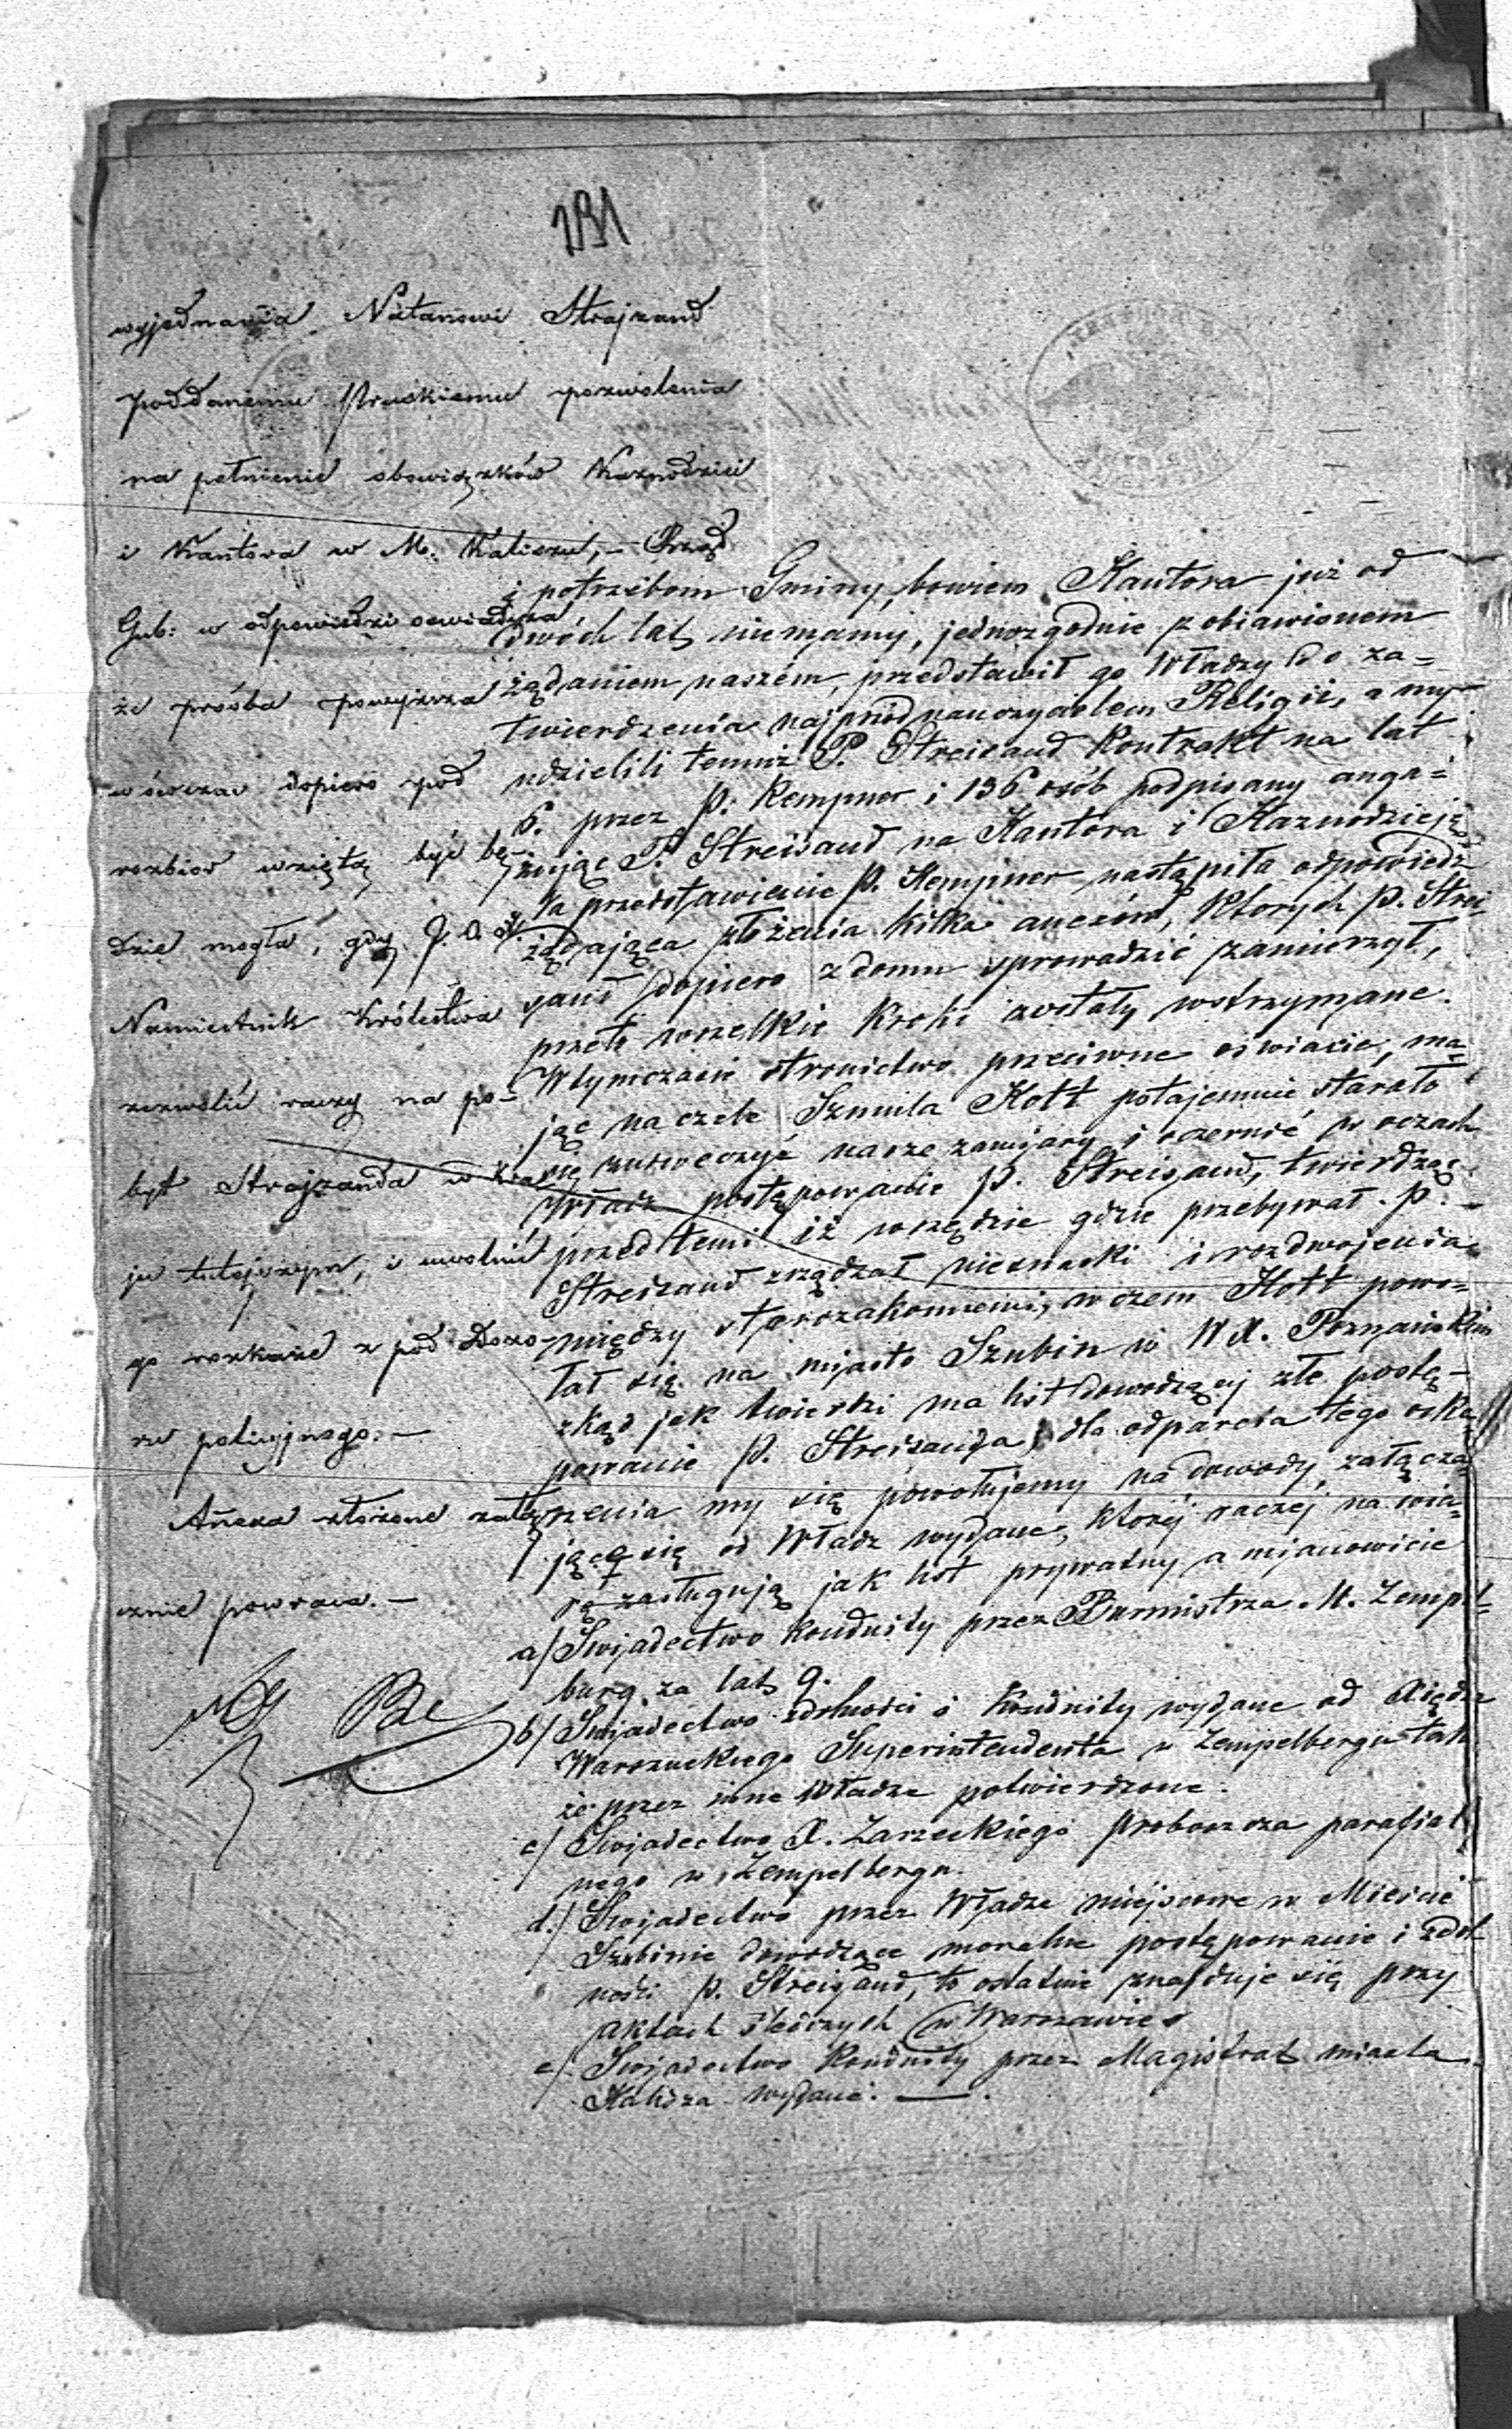 wyjednania Natanowi Strajzand
poddanemu Pruskiemu pozwolenia
na pełnienie obowiązków Kaznodziei
i Kantora w M. Kaliszu, – Rząd
Gub: w odpowiedzi oświadcza
że prośba powyższa
wówczas dopiero pod
rozbiór wziętą być bę-
dzie mogła, gdy J. O. X.
Namiestnik Królestwa
zezwolić raczy na po-
byt Strajzanda w Kra-
ju tutejszym, i uwolnić
go rozkaże z pod Dozo-
ru policyjnego. –
Anexa złożone załą-
cznie powraca. –
i potrzebom Gminy, bowiem Kantora już od
dwóch lat niemamy, jednozgodnie z obiawionem
żądaniem naszém, przedstawił go Władzy do za=
twierdzenia najprzód nauczycielem Religii, a my
udzielili temuż P. Streisand Kontrakt na lat
6. przez P. Kempner i 136 osób podpisany anga=
żując P. Streisand na Kantora i Kaznodzieję
Na przedstawienie P. Kempner nastąpiła odpowiedź
żądająca złożenia kilka anexów, których P. Strei
sand dopiero z domu sprowadzić zamierzył,
przeto wszelkie kroki zostały wstrzymane.
W tymczasie stronictwo przeciwne oświacie, ma=
jąc na czele Szmula Kott potajemnie starało
się zniweczyć nasze zamiary i oczernić w oczach
Władz postępowanie P. Streisand, twierdząc
przed temi iż wszędzie gdzie przebywał P. –
Streisand zrządzał niesnaski i rozdwojenia
między starozakonnemi, w czem Kott powo=
łał się na miasto Szubin w W. X. Poznańskim
zkąd jak twierdzi ma list dowodzący złe postę-
powanie P. Streisanda, dla odparcia tego oska
rzenia my się powołujemy na dowody załącza
jące się od Władz wydane, którzy raczéj na wia=
rę zasługują jak list prywatny a mianowicie
a/ Swiadectwo konduity przez Burmistrza M. Zempel=
burg za lat 9.
b/ Swiadectwo zdolności i konduity wydane od Xiędza
Warszuckiego Superintendenta w Zempelbergu tak
że przez inne Władze potwierdzone.
c/ Swiadectwo X. Zarzeckiego Proboszcza parafial
nego w Zempelbergu.
d/ Swiadectwo przez Władze miéjscowe w Mieście
Szubinie dowodzące moralne postępowanie i zdol
ności P. Streisand, to ostatnie znajduje się przy
aktach śledczych w Warszawie
e/ Swiadectwo konduity przez Magistrat miasta
Kalisza wydane. —.